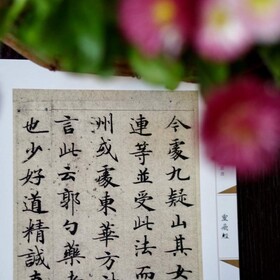 今處九疑山其女
連等並受此法而
州或處東華方
言此云郭勺藥
也少好道精誠